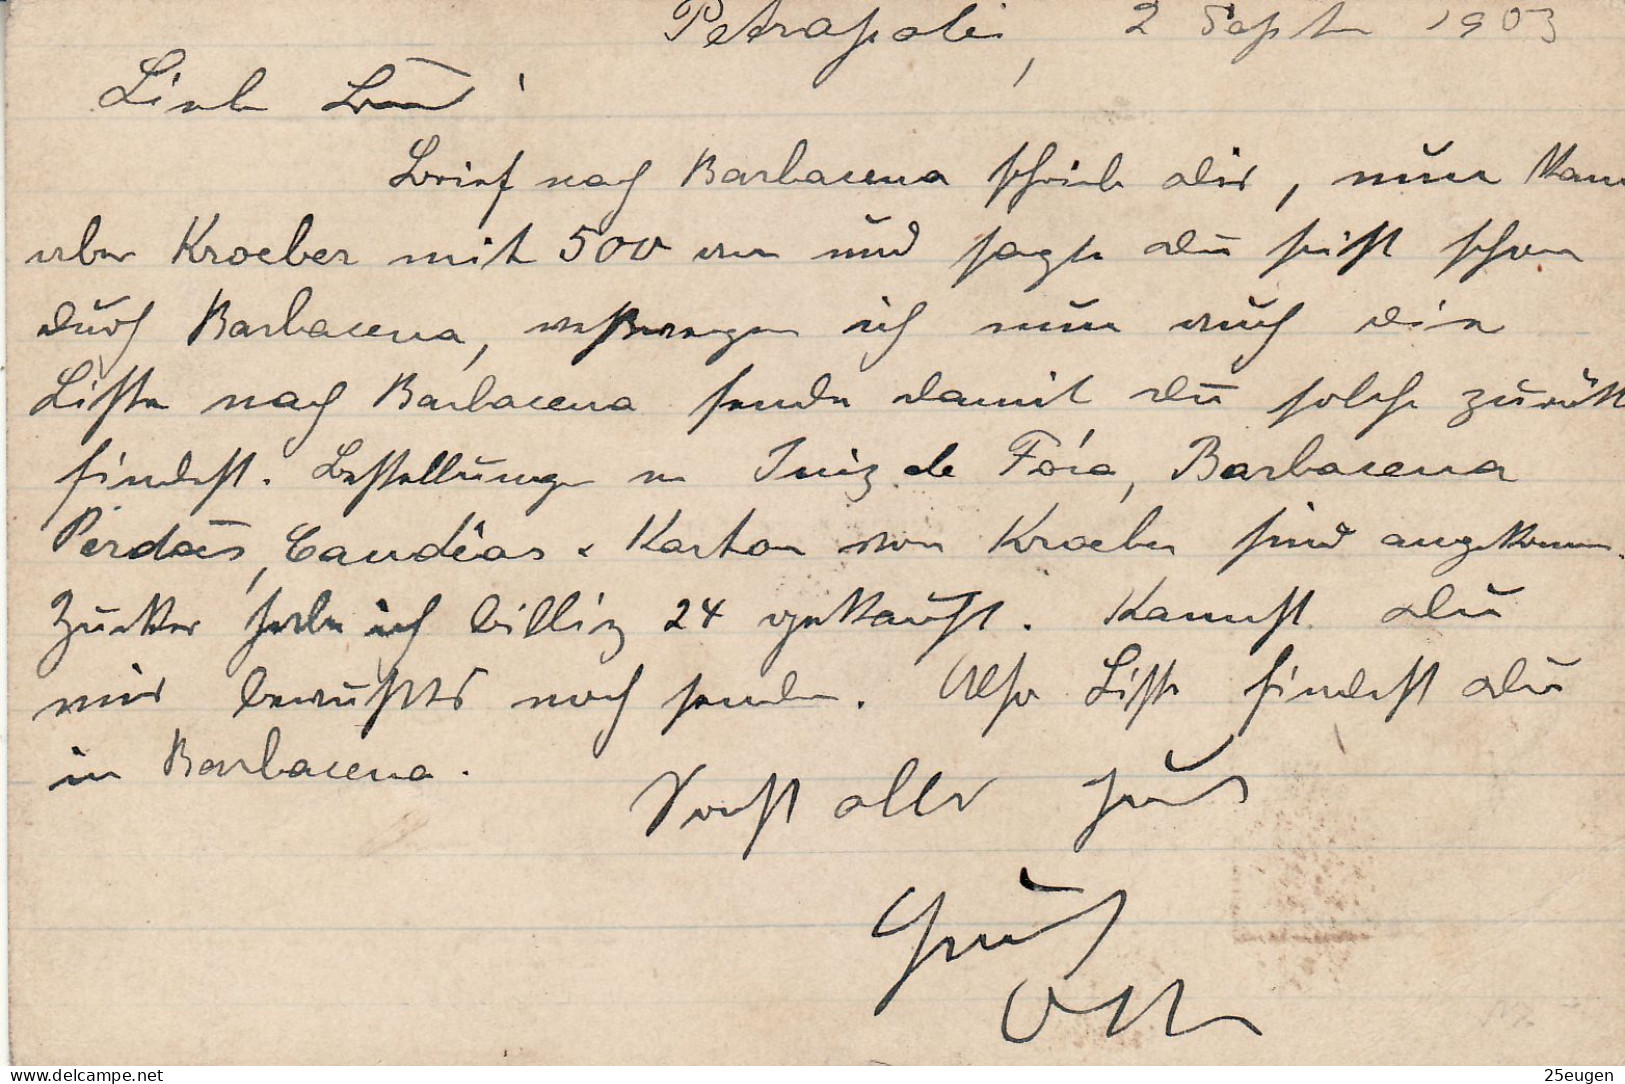 Petropolis, 2 Sept 1903
Brief nach Barbacena schrieb dir, nun kam
aber Kroeber mit 500 an und sagte du seist schon
durch Barbacena, weswegen ich nun auch die
Liste nach Barbacena sende damit du solche zurück
findest. Bestellungen Juiz de Fóra, Barbacena
Perdões, Candéas & Karton von Kroeber sind angekommen.
Zucker habe ich billig 24 gekauft. Kannst du
mir bewußtes noch senden. Also Liste findest du
in Barbacena.
Sonst alles gut
Gruß
Otto
www.delcampe.net
25eugen